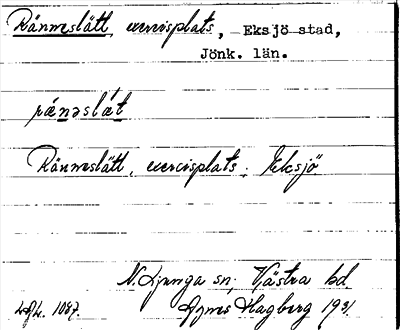 Ränneslätt exercisplats, Eksjö stad,
Jönk. län.
rǽnəslæ̀t
Ränneslätt, exercisplats; Eksjö
N. Ljunga sn; Västra hd
1087. Agnes Hagberg 1931